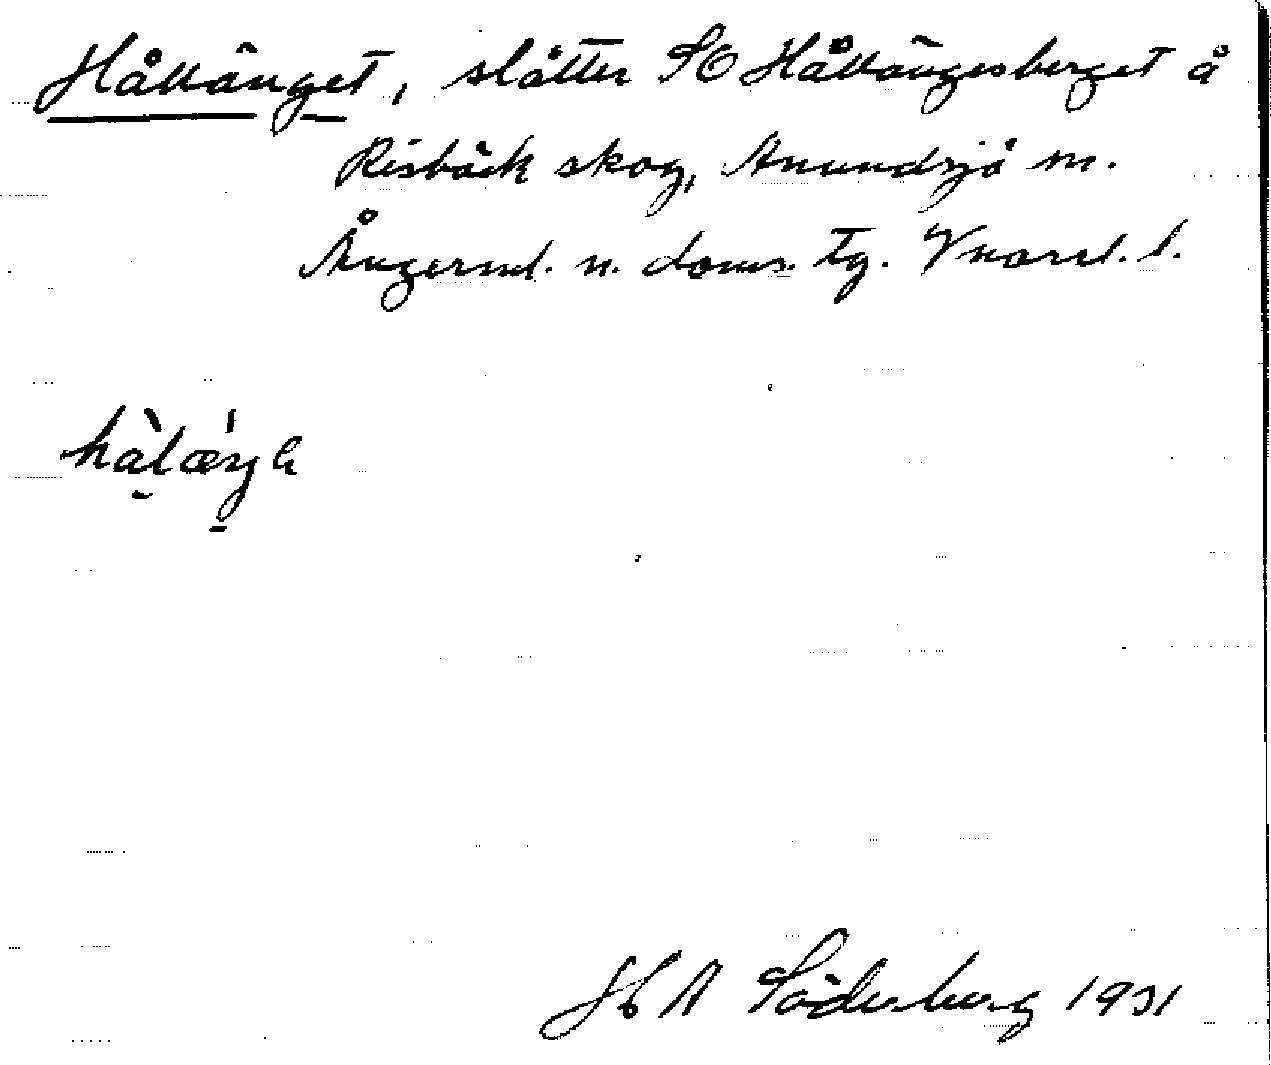 Hållänget, slåtter SO Hållängesberget å
Risbäck skog, Anundsjö sn.
Ångerml. n. doms. tg. Vnorrl. l.
H A Söderberg 1931